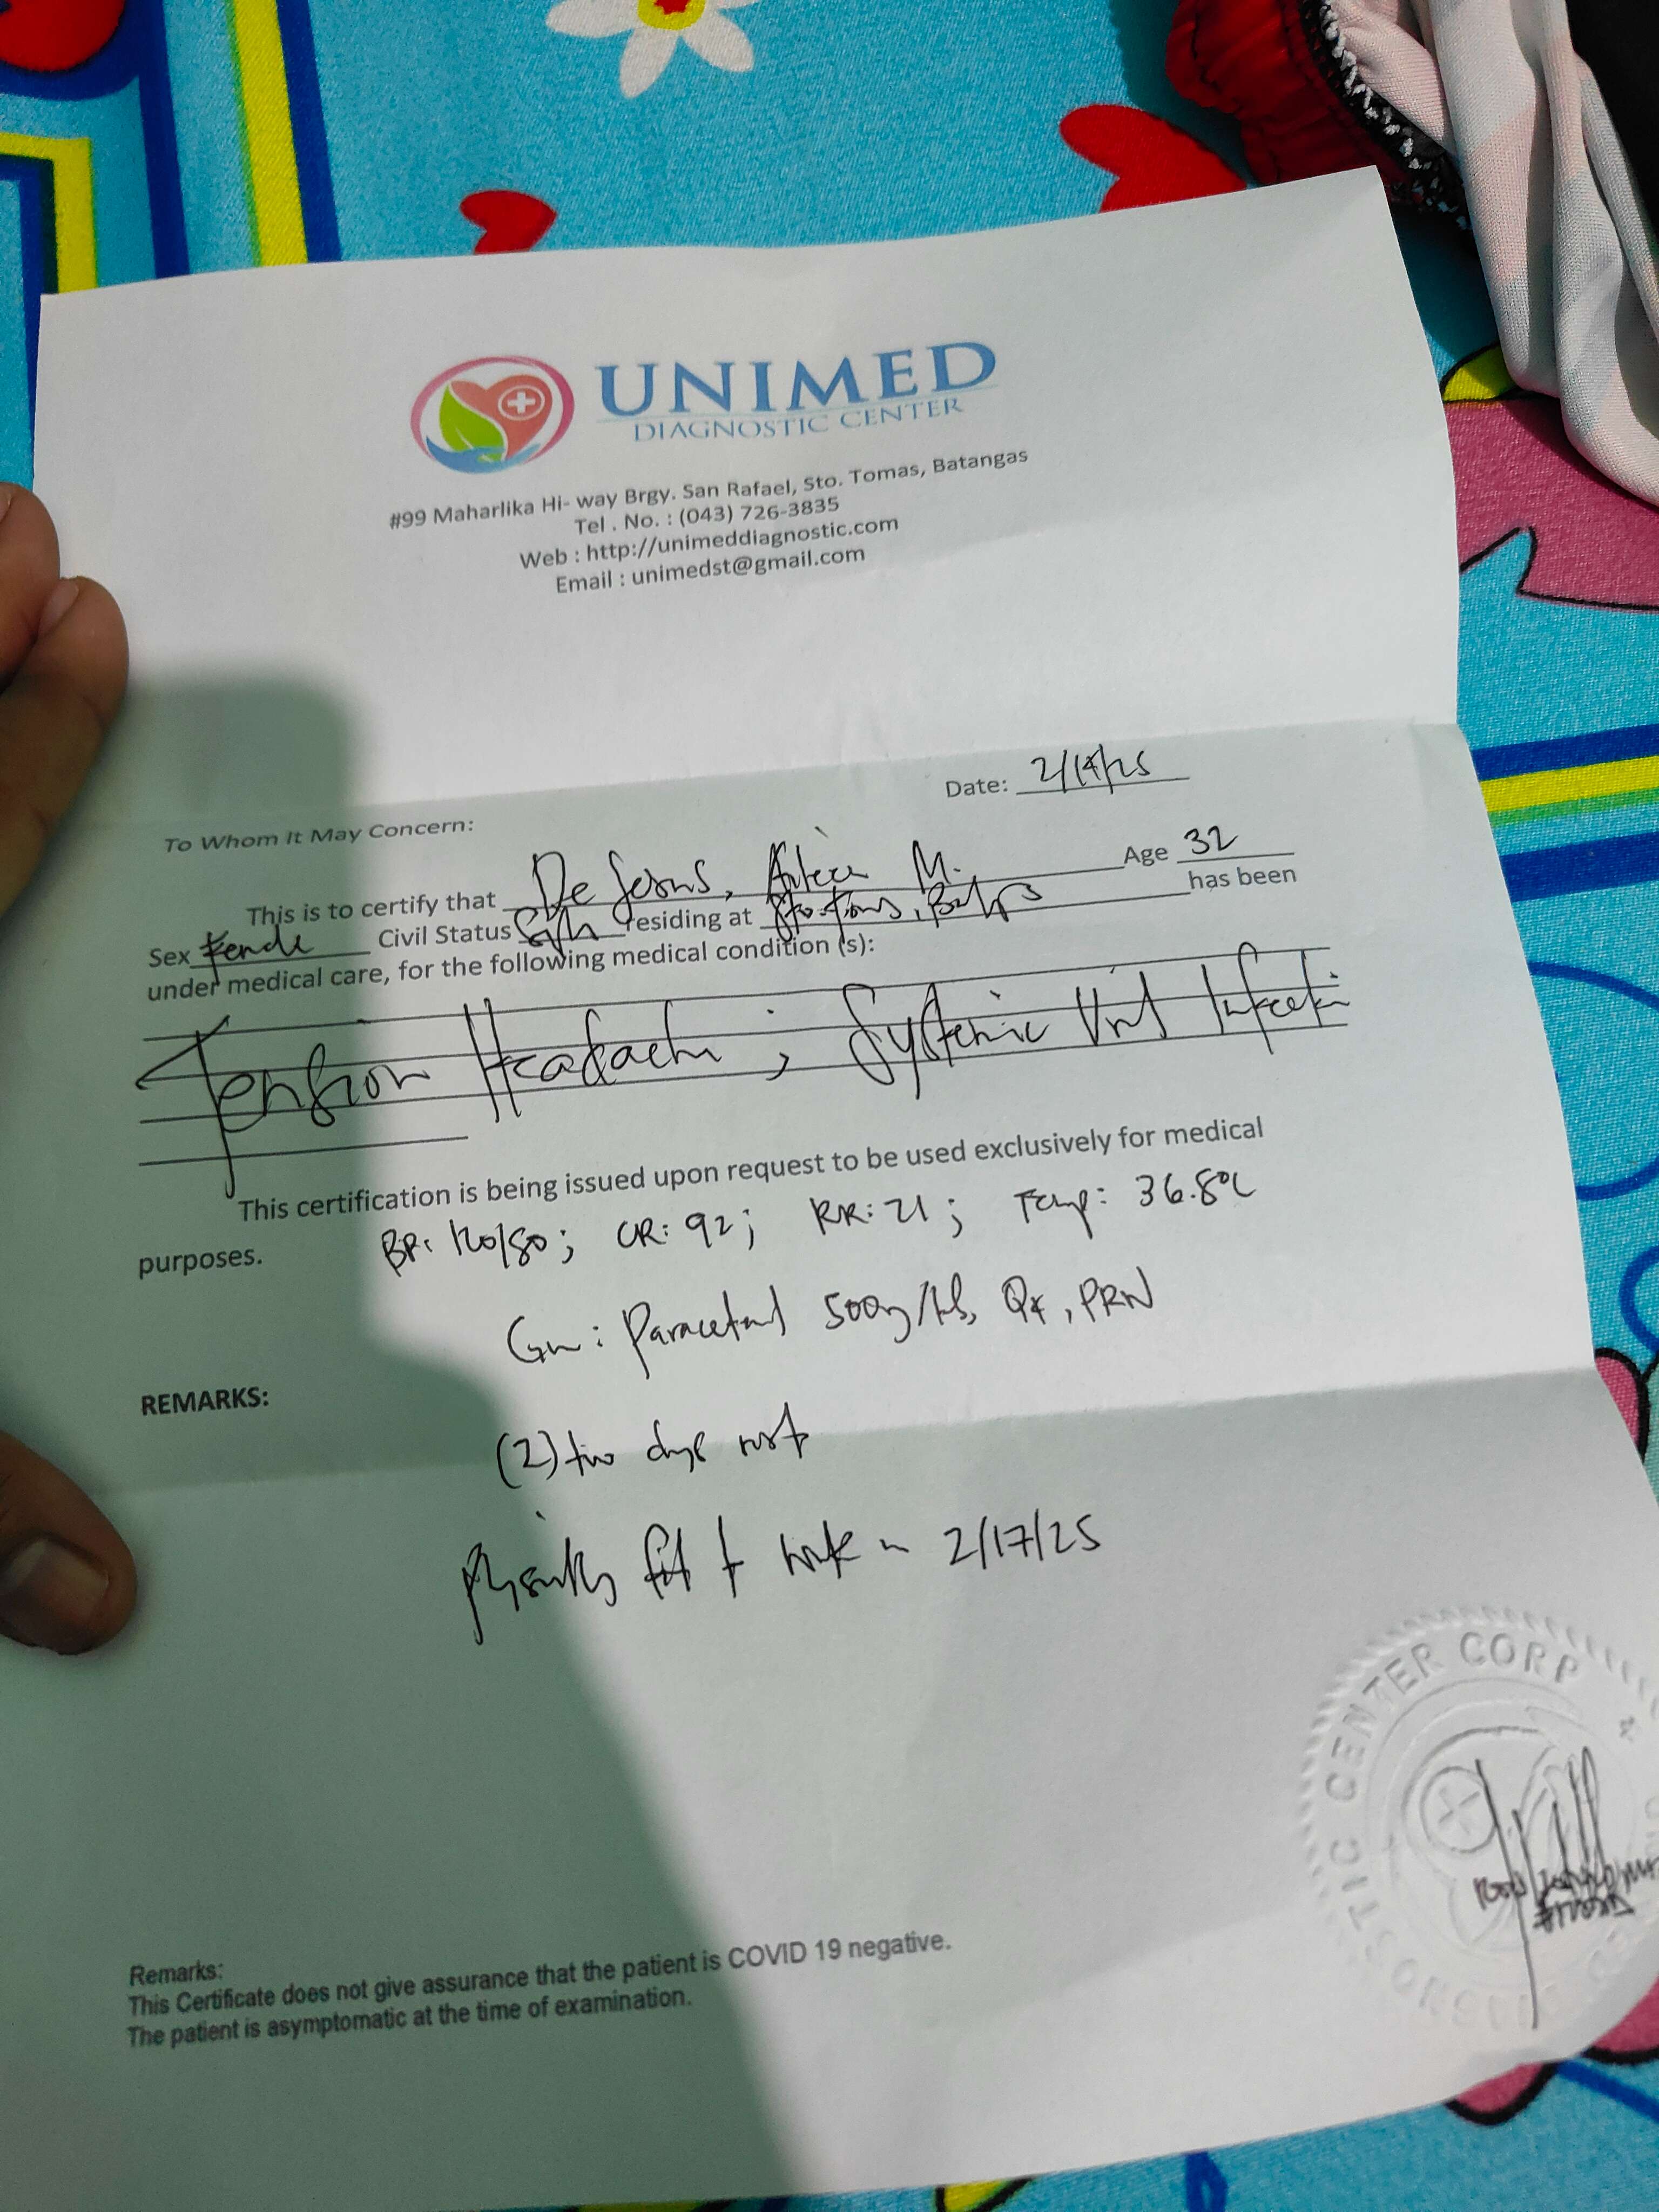 UNIMED
DIAGNOSTIC CENTER
#99 Maharlika Hi- way Brgy. San Rafael, Sto. Tomas, Batangas
Tel . No. : (043) 726-3835
Web : http://unimeddiagnostic.com
Email : unimedst@gmail.com
Date: 2/14/25
To Whom It May Concern:
This is to certify that De Jesus, M. Age 32
Sex Female Civil Status residing at has been
under medical care, for the following medical condition (s):
Tension Headache ; Systemic Viral Infection
This certification is being issued upon request to be used exclusively for medical
purposes. BP: 120/80 ; CR: 92 ; RR: 21 ; Temp: 36.8°C
Paracetamol 500mg/tab, PRN
REMARKS:
(2) two days rest
Physically fit to work on 2/17/25
DIAGNOSTIC CENTER CORP
Remarks:
This Certificate does not give assurance that the patient is COVID 19 negative.
The patient is asymptomatic at the time of examination.